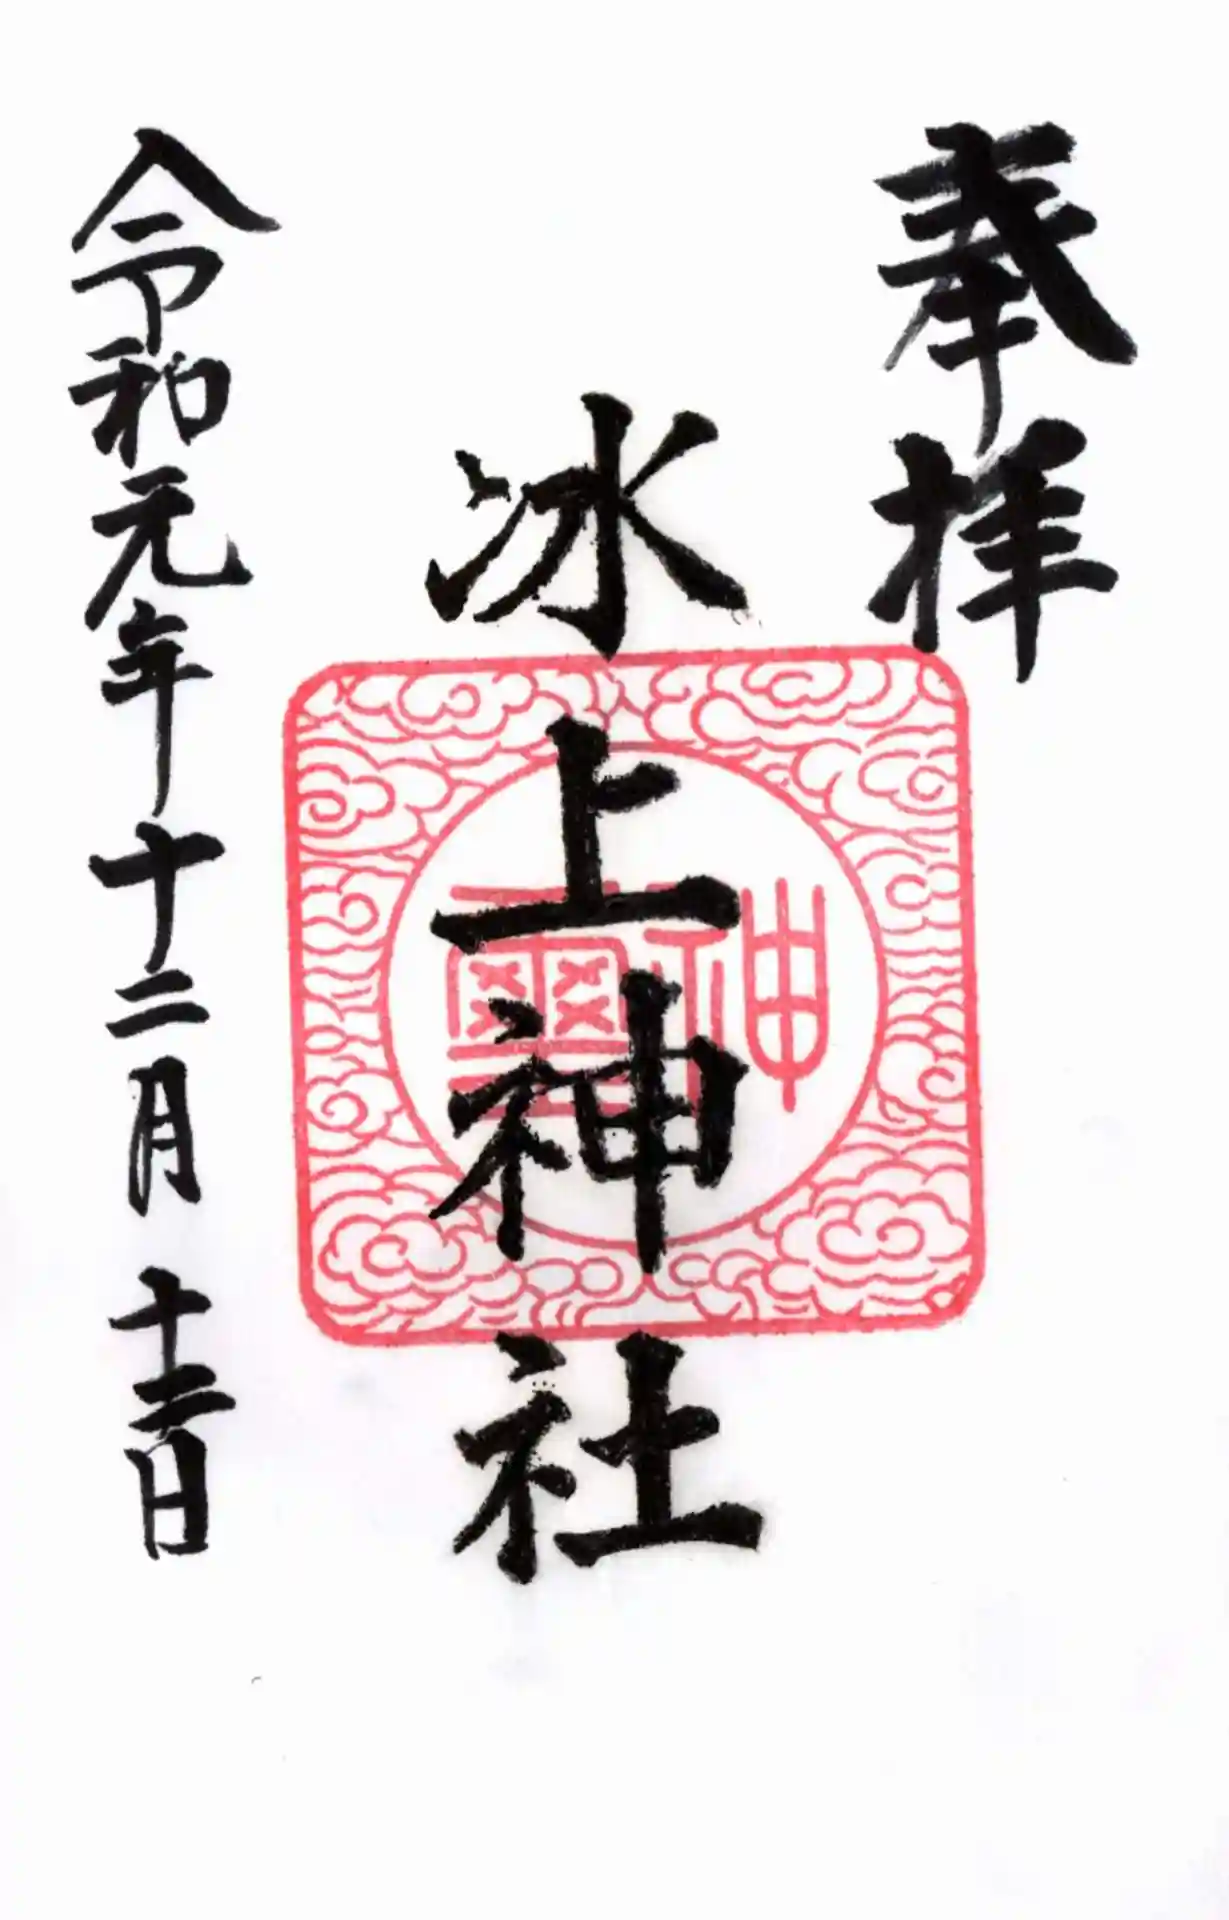 奉拝
冰上神社
令和元年十二月十二日